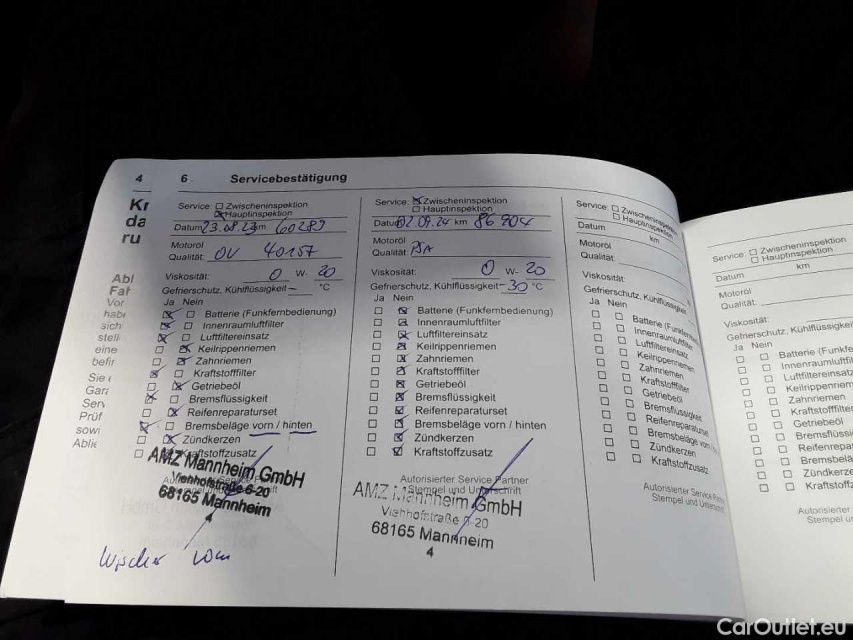 4
Kr
da
ru
Abl
Fah
Vor
habe
sich
stell
eine
befir
Sie
Gara
Ser
Prüf
sowi
Ablie
6 Servicebestätigung
Service: ☐ Zwischeninspektion
☒ Hauptinspektion
Datum 23.08.23 km 60289
Motoröl
Qualität: OV 40157
Viskosität: 0 W- 20
Gefrierschutz, Kühlflüssigkeit – °C
Ja Nein
☒ ☐ Batterie (Funkfernbedienung)
☒ ☐ Innenraumluftfilter
☒ ☐ Luftfiltereinsatz
☐ ☒ Keilrippenriemen
☐ ☒ Zahnriemen
☒ ☐ Kraftstofffilter
☐ ☒ Getriebeöl
☒ ☐ Bremsflüssigkeit
☐ ☒ Reifenreparaturset
☒ ☐ Bremsbeläge vorn / hinten
☐ ☒ Zündkerzen
☐ ☒ Kraftstoffzusatz
AMZ Mannheim GmbH
Viehhofstraße 6-20
68165 Mannheim
Wischer vorn
Service: ☒ Zwischeninspektion
☐ Hauptinspektion
Datum 02.09.24 km 86904
Motoröl
Qualität: PSA
Viskosität: 0 W- 20
Gefrierschutz, Kühlflüssigkeit -30 °C
Ja Nein
☐ ☒ Batterie (Funkfernbedienung)
☐ ☒ Innenraumluftfilter
☐ ☒ Luftfiltereinsatz
☐ ☒ Keilrippenriemen
☐ ☒ Zahnriemen
☐ ☒ Kraftstofffilter
☐ ☒ Getriebeöl
☐ ☒ Bremsflüssigkeit
☐ ☒ Reifenreparaturset
☐ ☒ Bremsbeläge vorn / hinten
☐ ☒ Zündkerzen
☐ ☒ Kraftstoffzusatz
Autorisierter Service Partner
Stempel und Unterschrift
AMZ Mannheim GmbH
Viehhofstraße 6-20
68165 Mannheim
4
Service: ☐ Zwischeninspektion
☐ Hauptinspektion
Datum km
Motoröl
Qualität:
Viskosität:
Gefrierschutz, Kühlflüssigkeit
Ja Nein
☐ ☐ Batterie (Funkfern
☐ ☐ Innenraumluftfilter
☐ ☐ Luftfiltereinsatz
☐ ☐ Keilrippenriemen
☐ ☐ Zahnriemen
☐ ☐ Kraftstofffilter
☐ ☐ Getriebeöl
☐ ☐ Bremsflüssigkeit
☐ ☐ Reifenreparaturset
☐ ☐ Bremsbeläge vorn
☐ ☐ Zündkerzen
☐ ☐ Kraftstoffzusatz
Autorisierter Service Par
Stempel und Untersch
Service: ☐ Zwischeninspektion
☐ Hauptinspektion
Datum km
Motoröl
Qualität:
Viskosität:
Gefrierschutz, Kühlflüssigkeit
Ja Nein
☐ ☐ Batterie (Funkfe
☐ ☐ Innenraumluftf
☐ ☐ Luftfiltereinsatz
☐ ☐ Keilrippenriemen
☐ ☐ Zahnriemen
☐ ☐ Kraftstofffilter
☐ ☐ Getriebeöl
☐ ☐ Bremsflüssi
☐ ☐ Reifenrepara
☐ ☐ Bremsbelä
☐ ☐ Zündkerze
☐ ☐ Kraftstoffz
Autorisierter
Stempel u
CarOutlet.eu